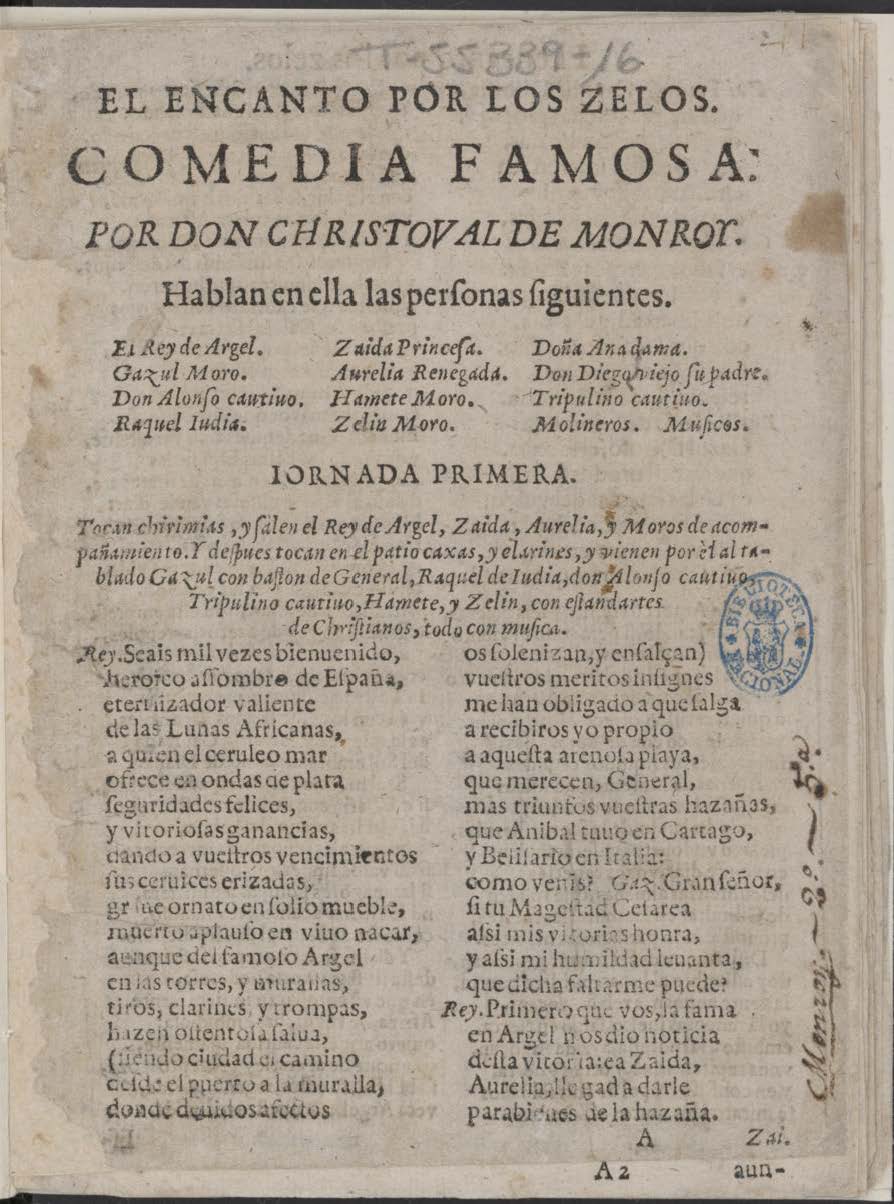 T-55889-16
EL ENCANTO POR LOS ZELOS.
COMEDIA FAMOSA:
POR DON CHRISTOVAL DE MONROY.
Hablan en ella las perſonas ſiguientes.
El Rey de Argel. Zaida Princeſa. Doña Ana dama.
Gazul Moro. Aurelia Renegada. Don Diego viejo ſu padre.
Don Alonſo cautiuo. Hamete Moro. Tripulino cautiuo.
Raquel Iudia. Zelin Moro. Molineros. Muſicos.
IORNADA PRIMERA.
Tocan chirimias, y ſalen el Rey de Argel, Zaida, Aurelia, y Moros de acom-
pañamiento. Y deſpues tocan en el patio caxas, y clarines, y vienen por èl al ta-
blado Gazul con baſton de General, Raquel de Iudia, don Alonſo cautiuo,
Tripulino cautiuo, Hamete, y Zelin, con eſtandartes
de Chriſtianos, todo con muſica.
Rey. Seais mil vezes bienuenido,
heroico aſſombro de Eſpaña,
eternizador valiente
de las Lunas Africanas,
a quien el ceruleo mar
ofrece en ondas de plata
ſeguridades felices,
y vitorioſas ganancias,
dando a vueſtros vencimientos
ſus ceruices erizadas,
ornato en ſolio mueble,
muerto aplauſo en viuo nacar,
aunque del famoſo Argel
en las torres, y murallas,
tiros, clarines, y trompas,
hazen oſtentoſa ſalua,
(ſiendo ciudad el camino
deſde el puerto a la muralla,
donde deuidos afectos
os ſolenizan, y enſalçan)
vueſtros meritos inſignes
me han obligado a que ſalga
a recibiros yo propio
a aqueſta arenoſa playa,
que merecen, General,
mas triunfos vueſtras hazañas,
que Anibal tuuo en Cartago,
y Beliſario en Italia:
como venis? Gaz. Gran ſeñor,
ſi tu Mageſtad Ceſarea
aſsi mis vitorias honra,
y aſsi mi humildad leuanta,
que dicha faltarme puede?
Rey. Primero que vos, la fama
en Argel nos dio noticia
deſta vitoria: ea Zaida,
Aurelia, llegad a darle
parabienes de la hazaña.
A Zai.
A2 aun-
BIBLIOTECA NACIONAL
Monroy. — 2º. — 5ª.